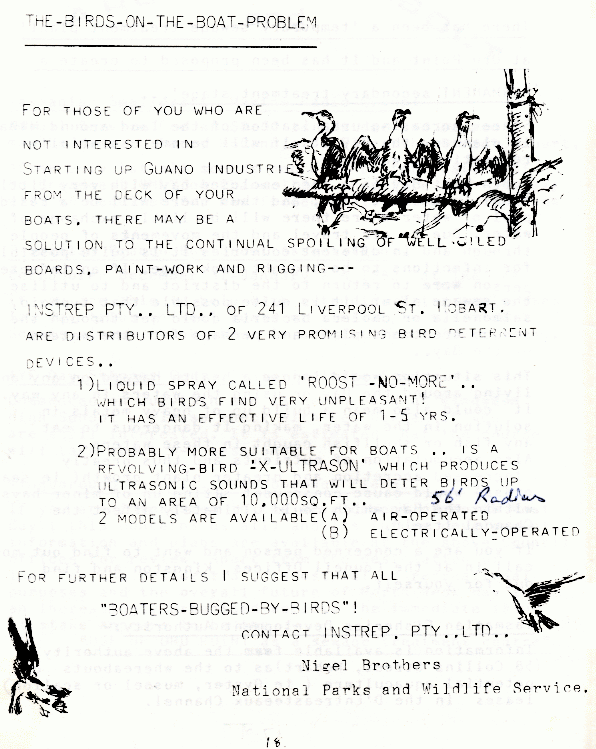 THE-BIRDS-ON-THE-BOAT-PROBLEM
FOR THOSE OF YOU WHO ARE
NOT INTERESTED IN
STARTING UP GUANO INDUSTRIES
FROM THE DECK OF YOUR
BOATS, THERE MAY BE A
SOLUTION TO THE CONTINUAL SPOILING OF WELL OILED
BOARDS, PAINT-WORK AND RIGGING---
INSTREP PTY.. LTD.. OF 241 LIVERPOOL ST. HOBART.
ARE DISTRIBUTORS OF 2 VERY PROMISING BIRD DETERRENT
DEVICES..
1)LIQUID SPRAY CALLED 'ROOST -NO-MORE'..
WHICH BIRDS FIND VERY UNPLEASANT!
IT HAS AN EFFECTIVE LIFE OF 1-5 YRS.
2)PROBABLY MORE SUITABLE FOR BOATS .. IS A
REVOLVING-BIRD 'X-ULTRASON' WHICH PRODUCES
ULTRASONIC SOUNDS THAT WILL DETER BIRDS UP
TO AN AREA OF 10,000SQ.FT.. 56' Radius
2 MODELS ARE AVAILABLE(A) AIR-OPERATED
(B) ELECTRICALLY-OPERATED
FOR FURTHER DETAILS I SUGGEST THAT ALL
"BOATERS-BUGGED-BY-BIRDS"!
CONTACT INSTREP. PTY..LTD..
Nigel Brothers
National Parks and Wildlife Service.
18